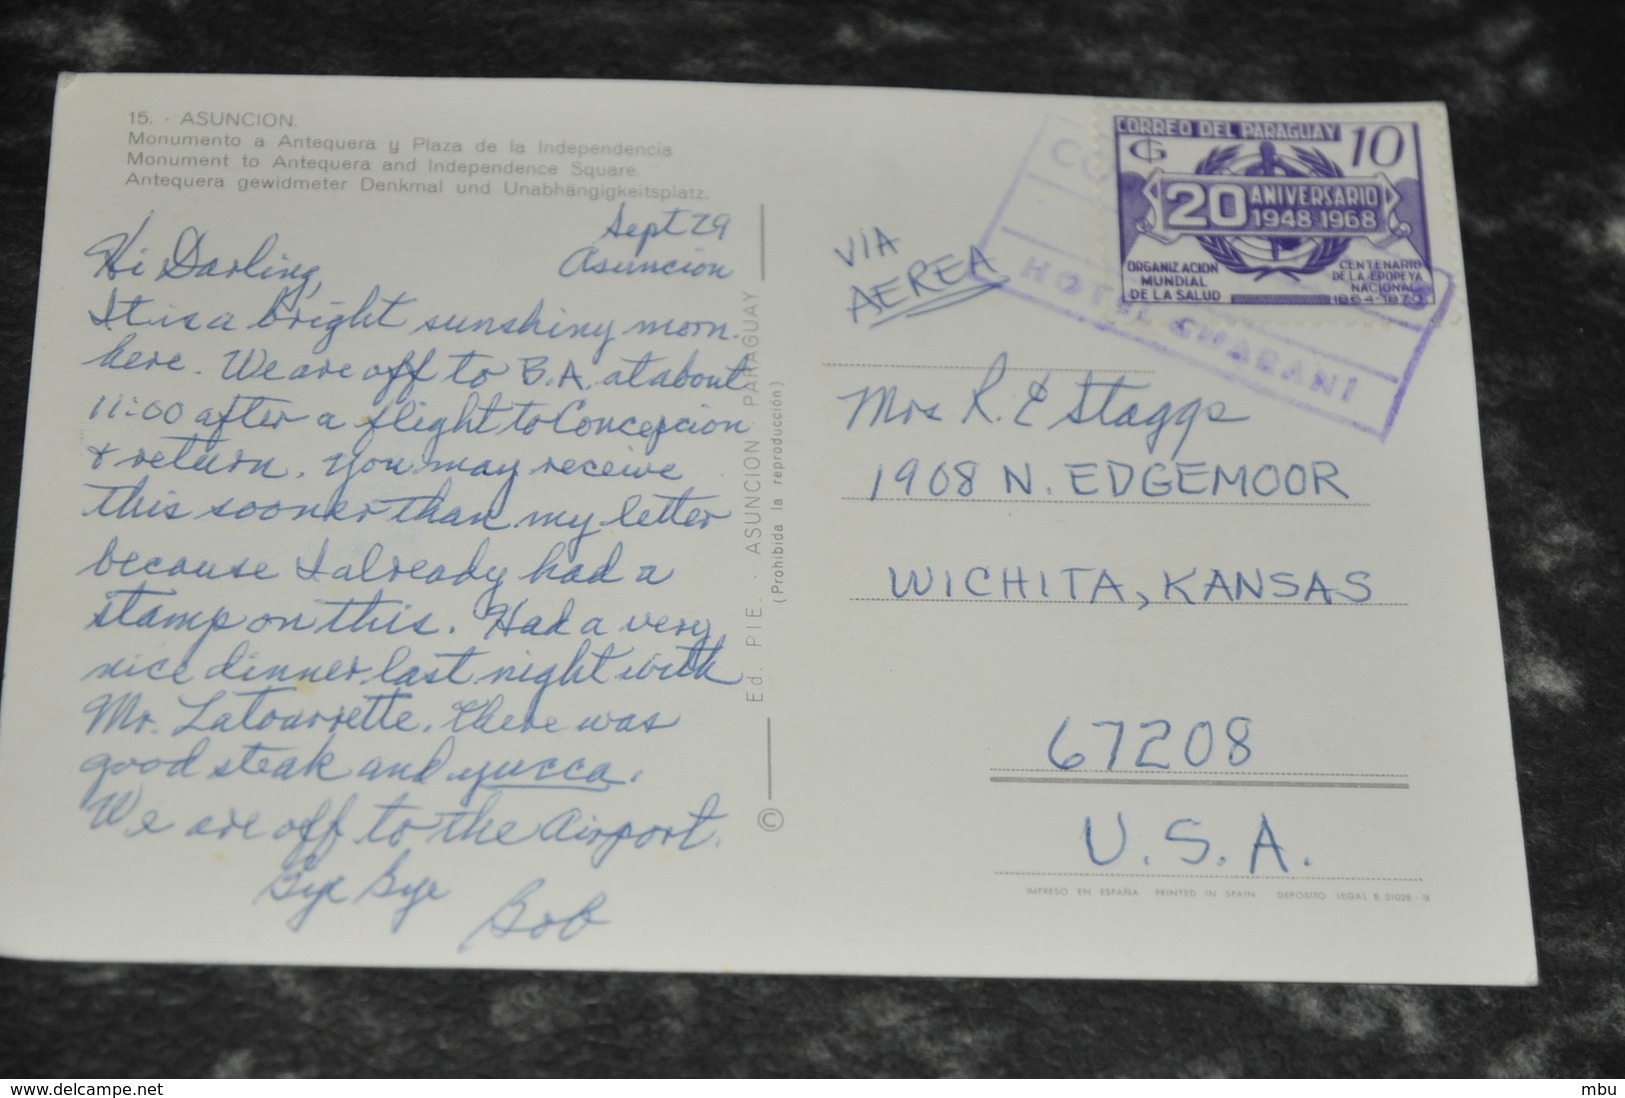 15. - ASUNCION.
Monumento a Antequera y Plaza de la Independencia
Monument to Antequera and Independence Square.
Antequera gewidmeter Denkmal und Unabhängigkeitsplatz.
Sept 29
Asuncion
Hi Darling,
It is a bright sunshiny morn.
here. We are off to B.A. at about
11:00 after a flight to Concepcion
& return. You may receive
this sooner than my letter
because I already had a
stamp on this. Had a very
nice dinner last night with
Mr. Latourrette. There was
good steak and yucca.
We are off to the airport.
Bye Bye
Bob
Ed. PIE. - ASUNCION PARAGUAY
(Prohibida la reproducción)
©
VIA
AEREA
CORREO DEL PARAGUAY 10
20 ANIVERSARIO
1948 1968
ORGANIZACION
MUNDIAL
DE LA SALUD
CENTENARIO
DE LA EPOPEYA
NACIONAL
1864-1870
HOTEL GUARANI
Mrs R. E Staggs
1908 N. EDGEMOOR
WICHITA, KANSAS
67208
U.S.A.
IMPRESO EN ESPAÑA PRINTED IN SPAIN DEPOSITO LEGAL B. 21028 - IX
www.delcampe.net
mbu